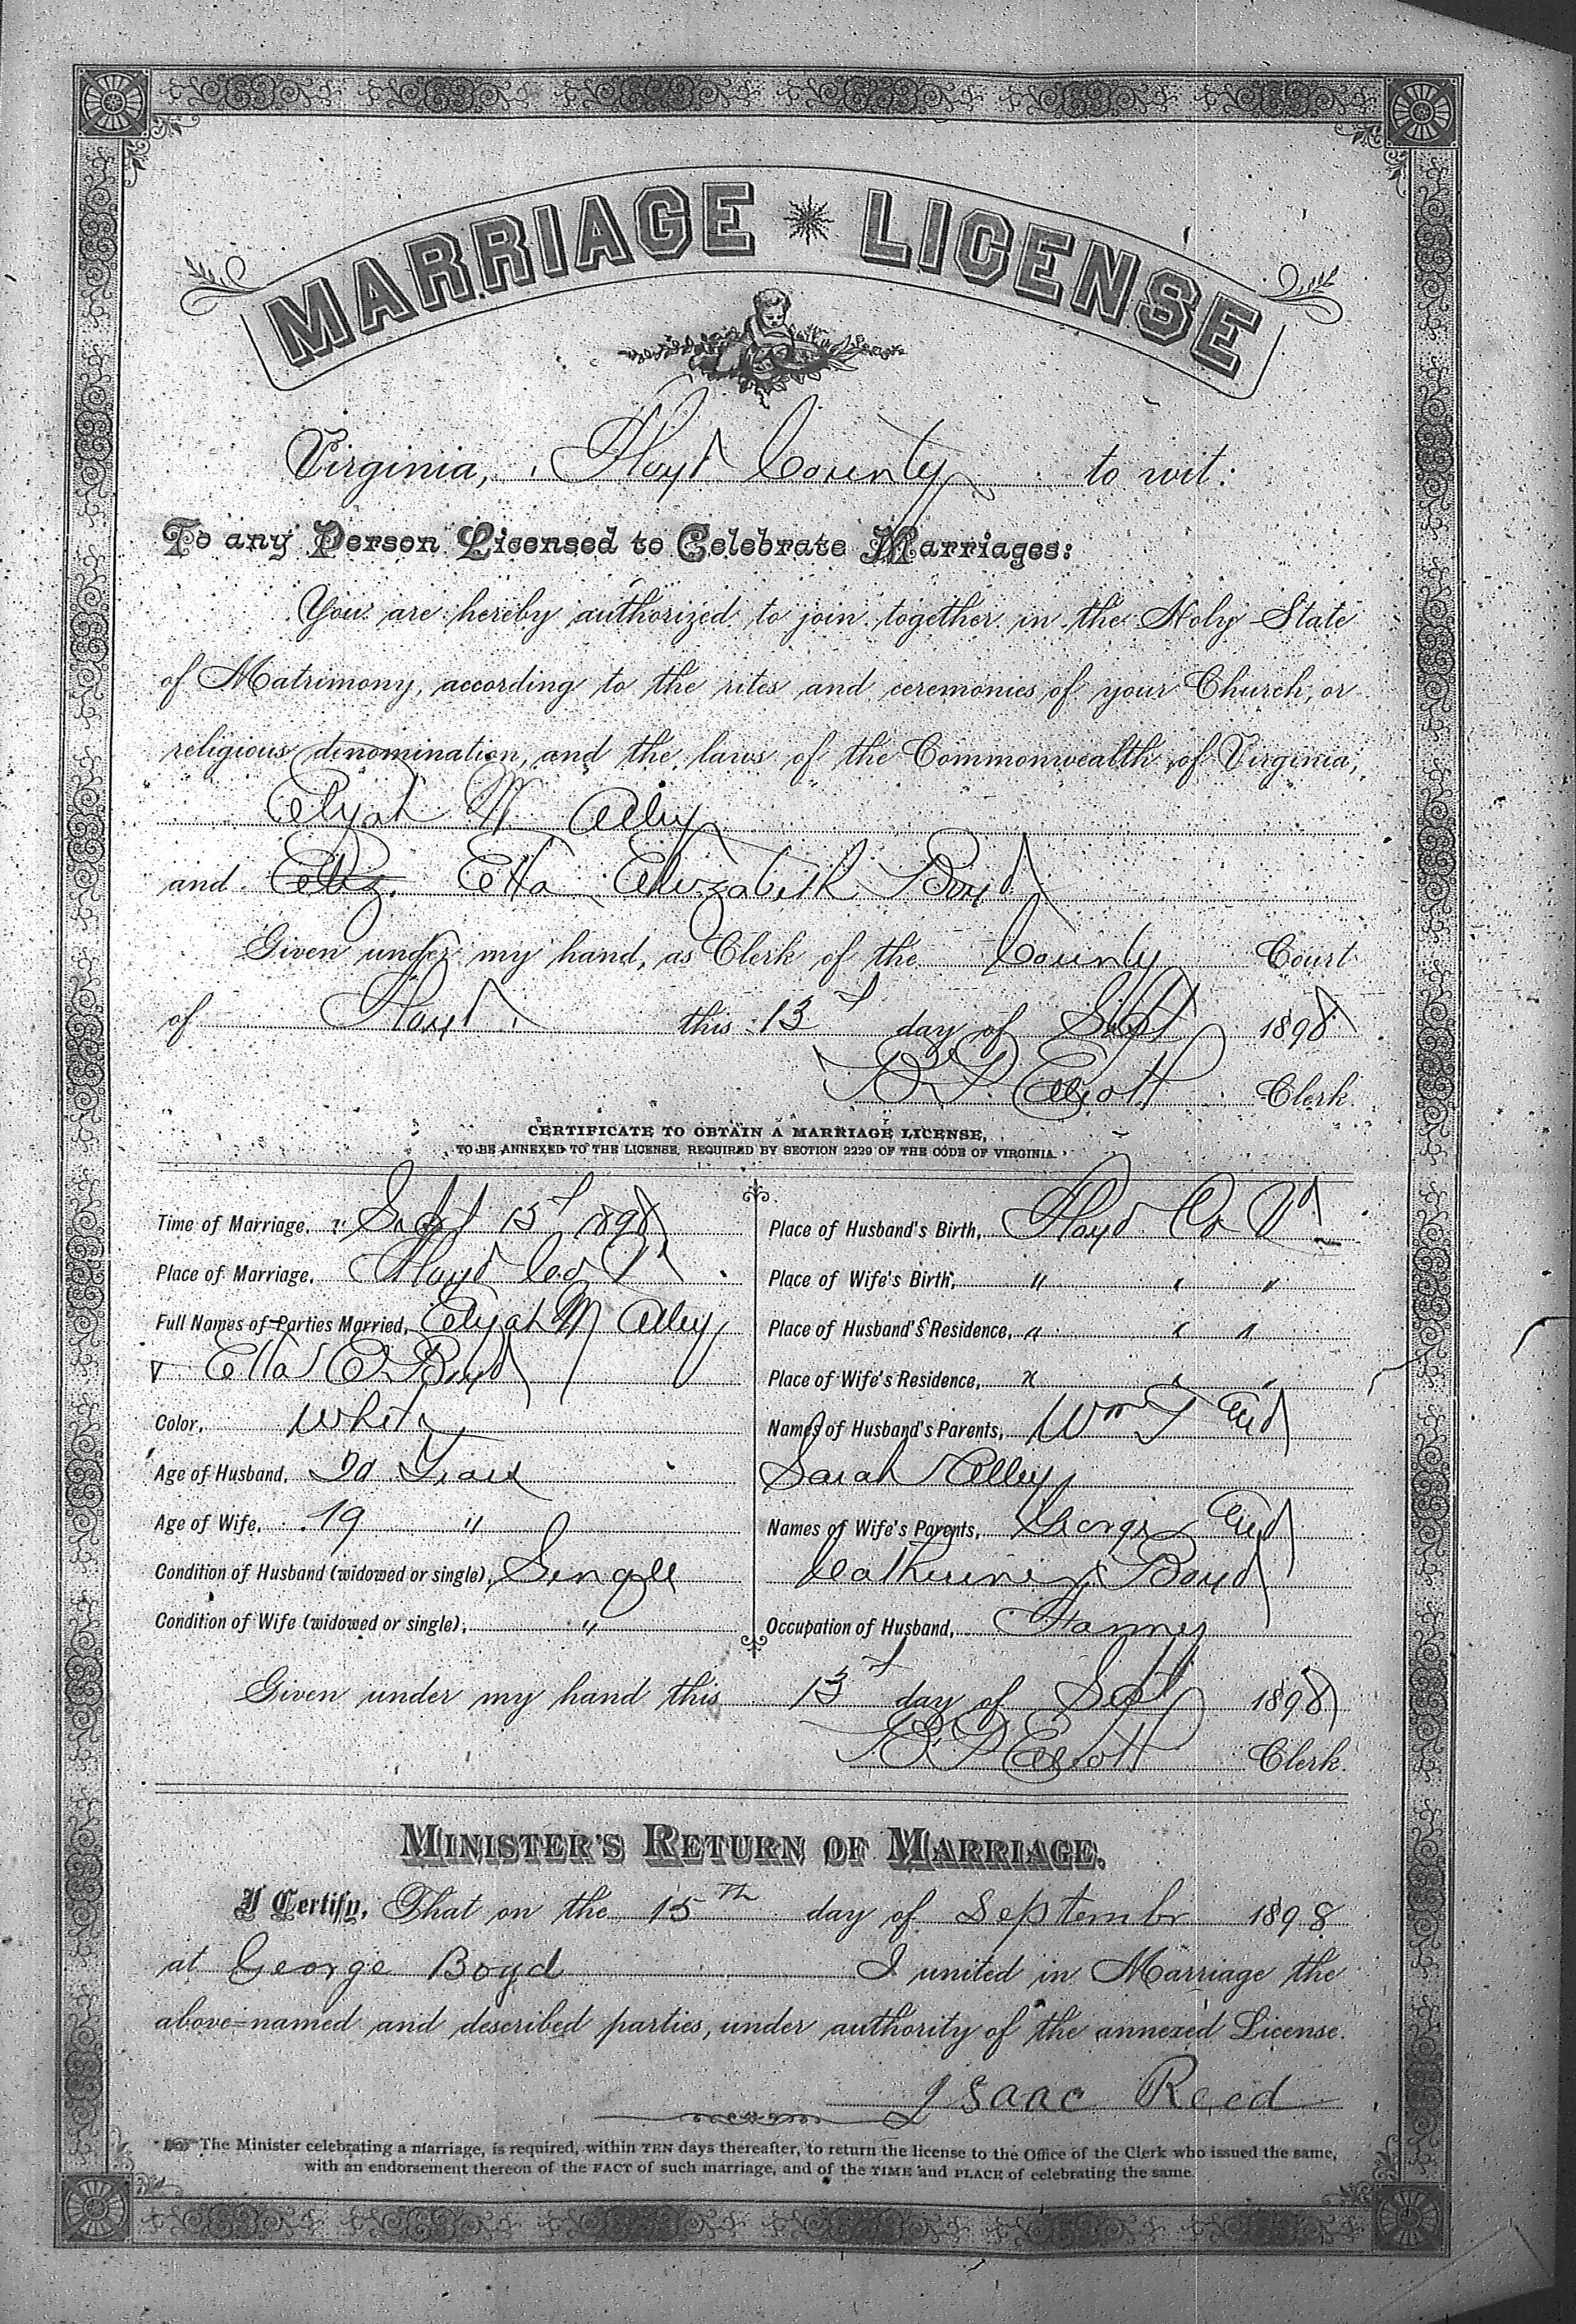 MARRIAGE LICENSE
Virginia, Floyd County to wit:
To any Person Licensed to Celebrate Marriages:
You are hereby authorized to join together in the Holy State
of Matrimony, according to the rites and ceremonies of your Church, or
religious denomination, and the laws of the Commonwealth of Virginia,
Elijah M Alley
and Eliz. Etta Elizabeth Boyd
Given under my hand, as Clerk of the County Court
of Floyd this 13 day of Sept 1898
Elliott Clerk.
CERTIFICATE TO OBTAIN A MARRIAGE LICENSE,
TO BE ANNEXED TO THE LICENSE, REQUIRED BY SECTION 2229 OF THE CODE OF VIRGINIA.
Time of Marriage, Sept 15 1898
Place of Marriage, Floyd Co
Full Names of Parties Married, Elijah M Alley
Etta E Boyd
Color, White
Age of Husband, Years
Age of Wife, 19 "
Condition of Husband (widowed or single), Single
Condition of Wife (widowed or single), "
Place of Husband's Birth, Floyd Co Va
Place of Wife's Birth, " " "
Place of Husband's Residence, " " "
Place of Wife's Residence, " " "
Names of Husband's Parents, Wm T and
Sarah Alley
Names of Wife's Parents, George and
Catherine Boyd
Occupation of Husband, Farmer
Given under my hand this 13 day of Sept 1898
Elliott Clerk.
MINISTER'S RETURN OF MARRIAGE.
I Certify, That on the 15th day of Septembr 1898
at George Boyd I united in Marriage the
above-named and described parties, under authority of the annexed License.
Isaac Reed
The Minister celebrating a marriage, is required, within TEN days thereafter, to return the license to the Office of the Clerk who issued the same,
with an endorsement thereon of the FACT of such marriage, and of the TIME and PLACE of celebrating the same.